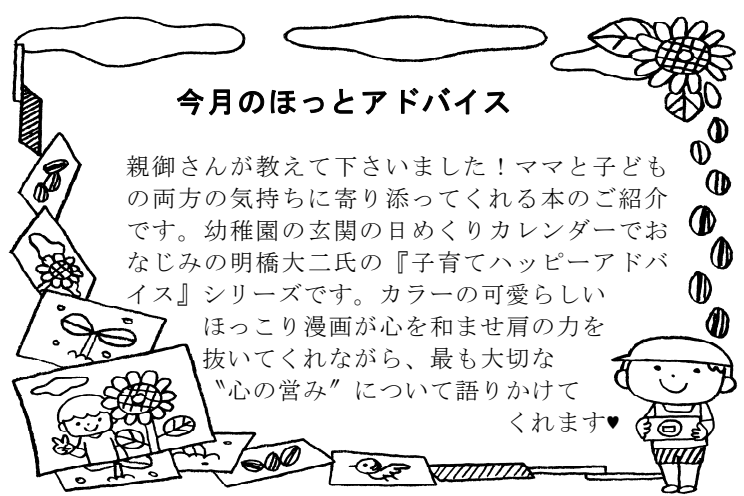 今月のほっとアドバイス
親御さんが教えて下さいました！ママと子ども
の両方の気持ちに寄り添ってくれる本のご紹介
です。幼稚園の玄関の日めくりカレンダーでお
なじみの明橋大二氏の『子育てハッピーアドバ
イス』シリーズです。カラーの可愛らしい
ほっこり漫画が心を和ませ肩の力を
抜いてくれながら、最も大切な
〝心の営み〟について語りかけて
くれます♥